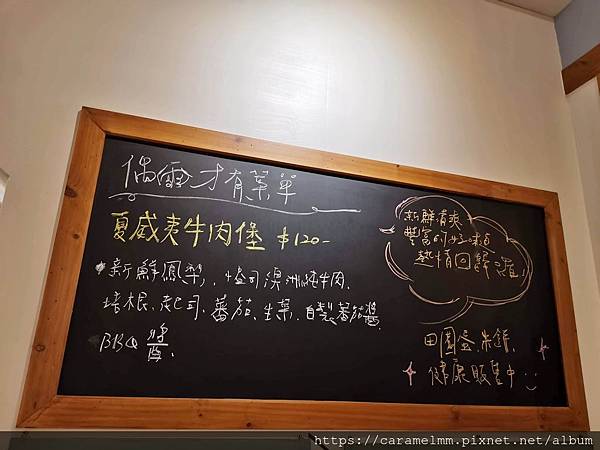 偶爾才有菜單
夏威夷牛肉堡 $120-
新鮮鳳梨, 澳洲純牛肉.
培根. 起司. 蕃茄. 生菜. 自製蕃茄醬.
BBQ 醬.
新鮮清爽
豐富的好味道
熱情回歸 囉!
田園蛋 米飯.
健康販售中
https://caramelmm.pixnet.net/album